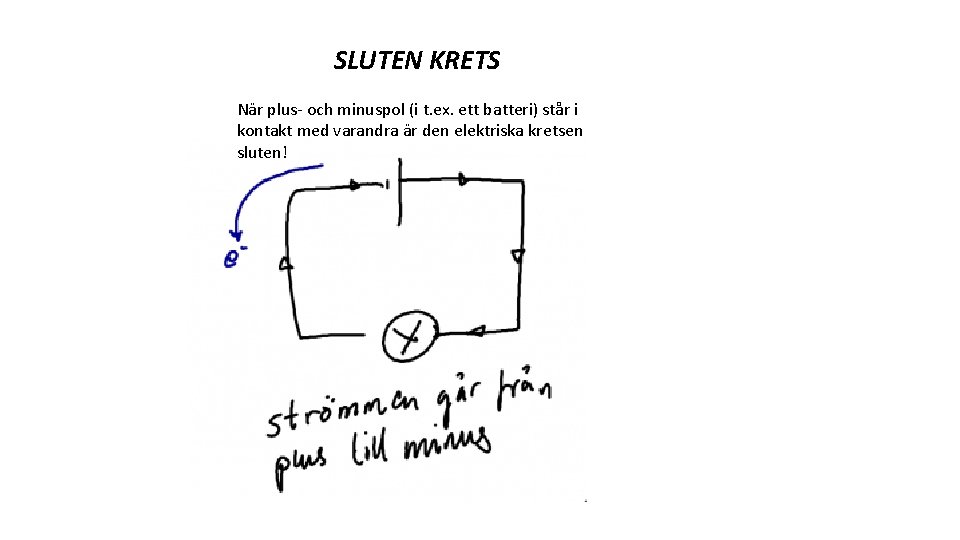 SLUTEN KRETS
När plus- och minuspol (i t.ex. ett batteri) står i
kontakt med varandra är den elektriska kretsen
sluten!
e-
strömmen går från
plus till minus